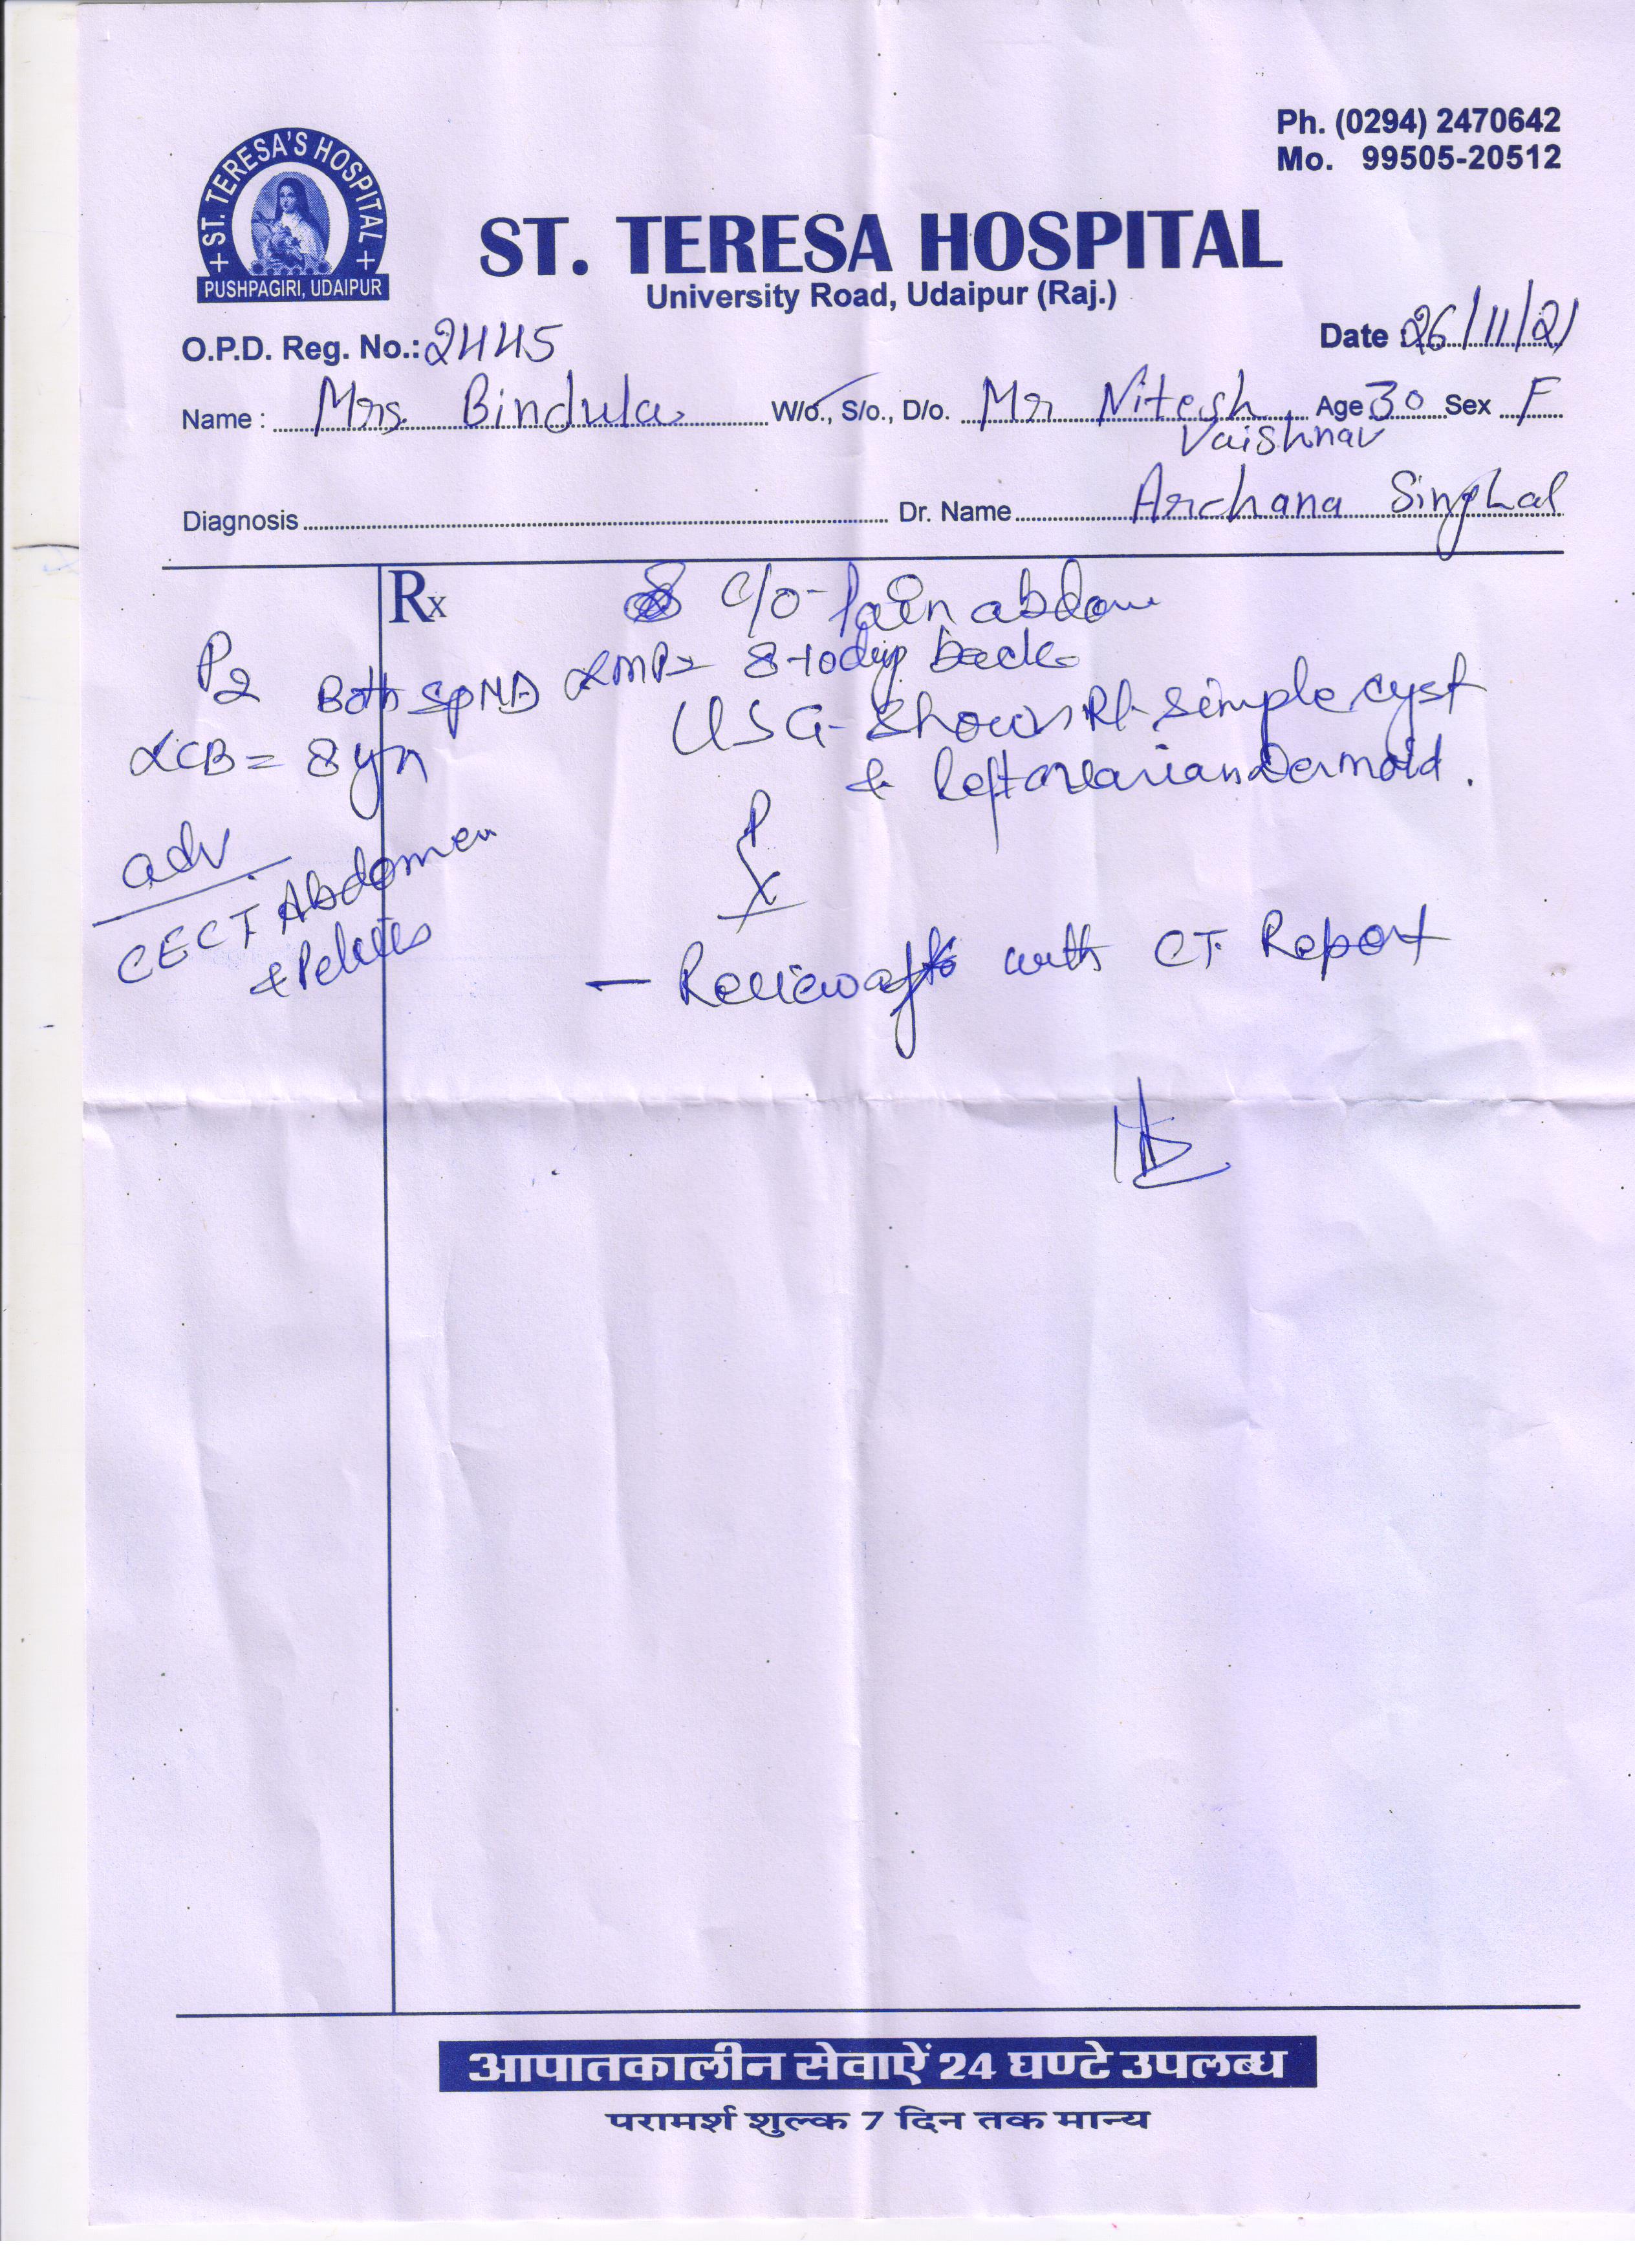 Ph. (0294) 2470642
Mo. 99505-20512
ST. TERESA'S HOSPITAL
PUSHPAGIRI, UDAIPUR
ST. TERESA HOSPITAL
University Road, Udaipur (Raj.)
O.P.D. Reg. No.: 2445 Date 26/11/21
Name : Mrs. Bindula W/o., S/o., D/o. Mr Nitesh Age 30 Sex F
Vaishnav
Diagnosis Dr. Name Archana Singhal
Rx c/o - Pain abdom
P2 Both SpND LMP = 8-10 days back
USG - Shows Rt. Simple cyst
LCB = 8 yr & left ovarian Dermoid.
adv
CECT Abdomen
& Pelvis
- Review with CT Report
आपातकालीन सेवाऐं 24 घण्टे उपलब्ध
परामर्श शुल्क 7 दिन तक मान्य